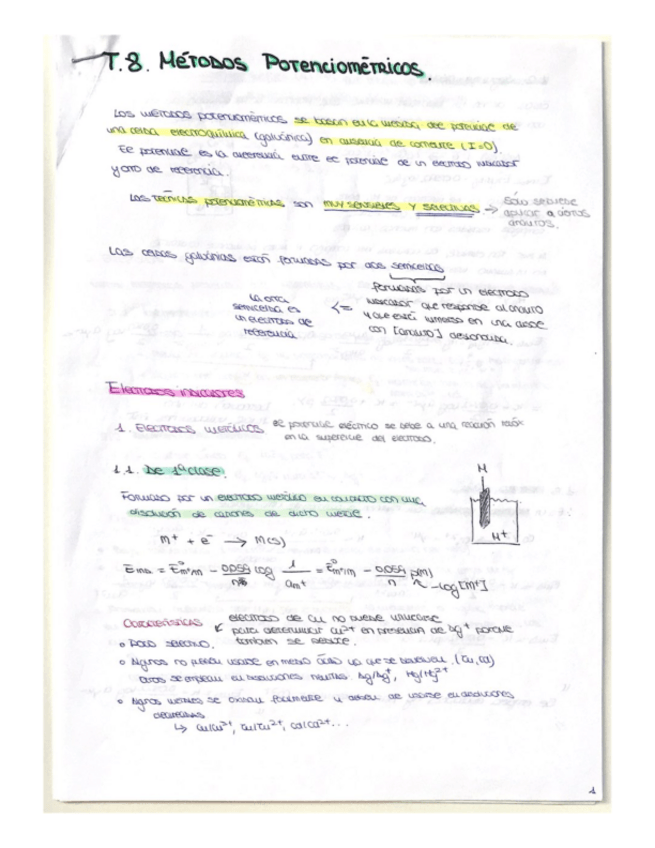 T.8. Métodos Potenciométricos.
Los métodos potenciométricos se basan en la medida del potencial de
una celda electroquímica (galvánica) en ausencia de corriente (I=0).
Ee potencial es la diferencia entre ee potencial de un electrodo indicador
y otro de referencia.
Las técnicas potenciométricas son muy sensibles y selectivas → Sólo se puede
aplicar a ciertos
analitos.
Las celdas galvánicas están formadas por dos semiceldas
formadas por un electrodo
indicador que responde al analito
y que está inmerso en una disol
con [analito] desconocida.
<=
La otra
semicelda es
un electrodo de
referencia
Electrodos indicadores
1. Electrodos metálicos ee potencial eléctrico se debe a una reacción redox
en la superficie del electrodo.
1.1. De 1ª clase.
Formado por un electrodo metálico en contacto con una
disolución de cationes de dicho metal.
M
M+
M+ + e- → M(s)
log 1/aM+
-log[M+]
Características electrodo de Cu no puede utilizarse
para determinar Cu2+ en presencia de Ag+ porque
también se
• Poco selectivo.
• Algunos no pueden usarse en medio ácido ya que se disuelven, (Cu,
otros se emplean en disoluciones neutras Ag/Ag+, Hg/Hg2+
• Algunos metales se oxidan fácilmente y deben de usarse en disoluciones
desaireadas
1